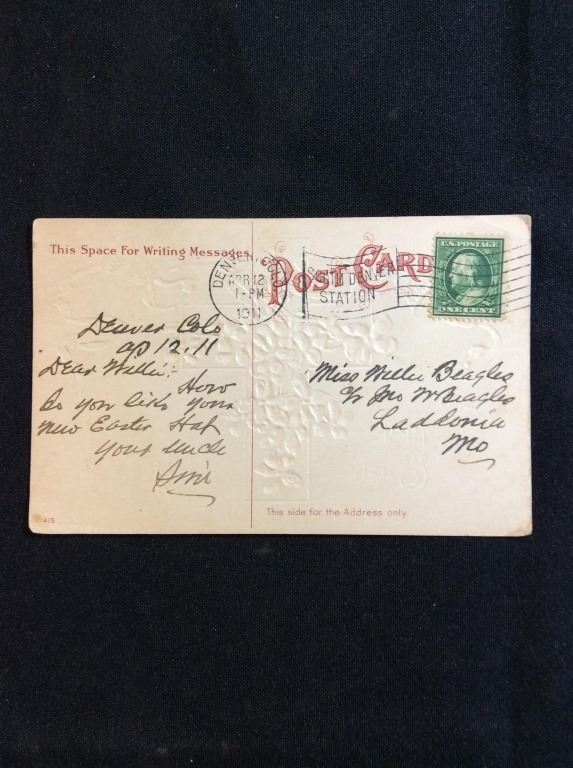 This Space For Writing Messages.
POST CARD
DENVER, COLO.
APR 12
1-PM
1911
SOUTH DENVER
STATION
U.S. POSTAGE
ONE CENT
Denver Colo
ap 12, 11
Dear Willie:-
How
Do you like your
new Easter Hat
your uncle
Miss Willie Beagles
c/o Jno W Beagles
Laddonia
Mo
This side for the Address only.
415